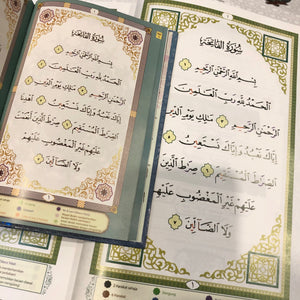 سُورَةُ الْفَاتِحَةِ
بِسْمِ اللَّهِ الرَّحْمَٰنِ الرَّحِيمِ
الْحَمْدُ لِلَّهِ رَبِّ الْعَٰلَمِينَ
الرَّحْمَٰنِ الرَّحِيمِ مَٰلِكِ يَوْمِ الدِّينِ
إِيَّاكَ نَعْبُدُ وَإِيَّاكَ نَسْتَعِينُ
الصِّرَٰطَ الْمُسْتَقِيمَ صِرَٰطَ الَّذِينَ
عَلَيْهِمْ غَيْرِ الْمَغْضُوبِ عَلَيْهِمْ
وَلَا الضَّالِّينَ
سُورَةُ الْفَاتِحَةِ
بِسْمِ اللَّهِ الرَّحْمَٰنِ الرَّحِيمِ
الْحَمْدُ لِلَّهِ رَبِّ الْعَٰلَمِينَ
الرَّحْمَٰنِ الرَّحِيمِ مَٰلِكِ يَوْمِ الدِّينِ
إِيَّاكَ نَعْبُدُ وَإِيَّاكَ نَسْتَعِينُ
الصِّرَٰطَ الْمُسْتَقِيمَ صِرَٰطَ الَّذِينَ
عَلَيْهِمْ غَيْرِ الْمَغْضُوبِ عَلَيْهِمْ
وَلَا الضَّالِّينَ
١